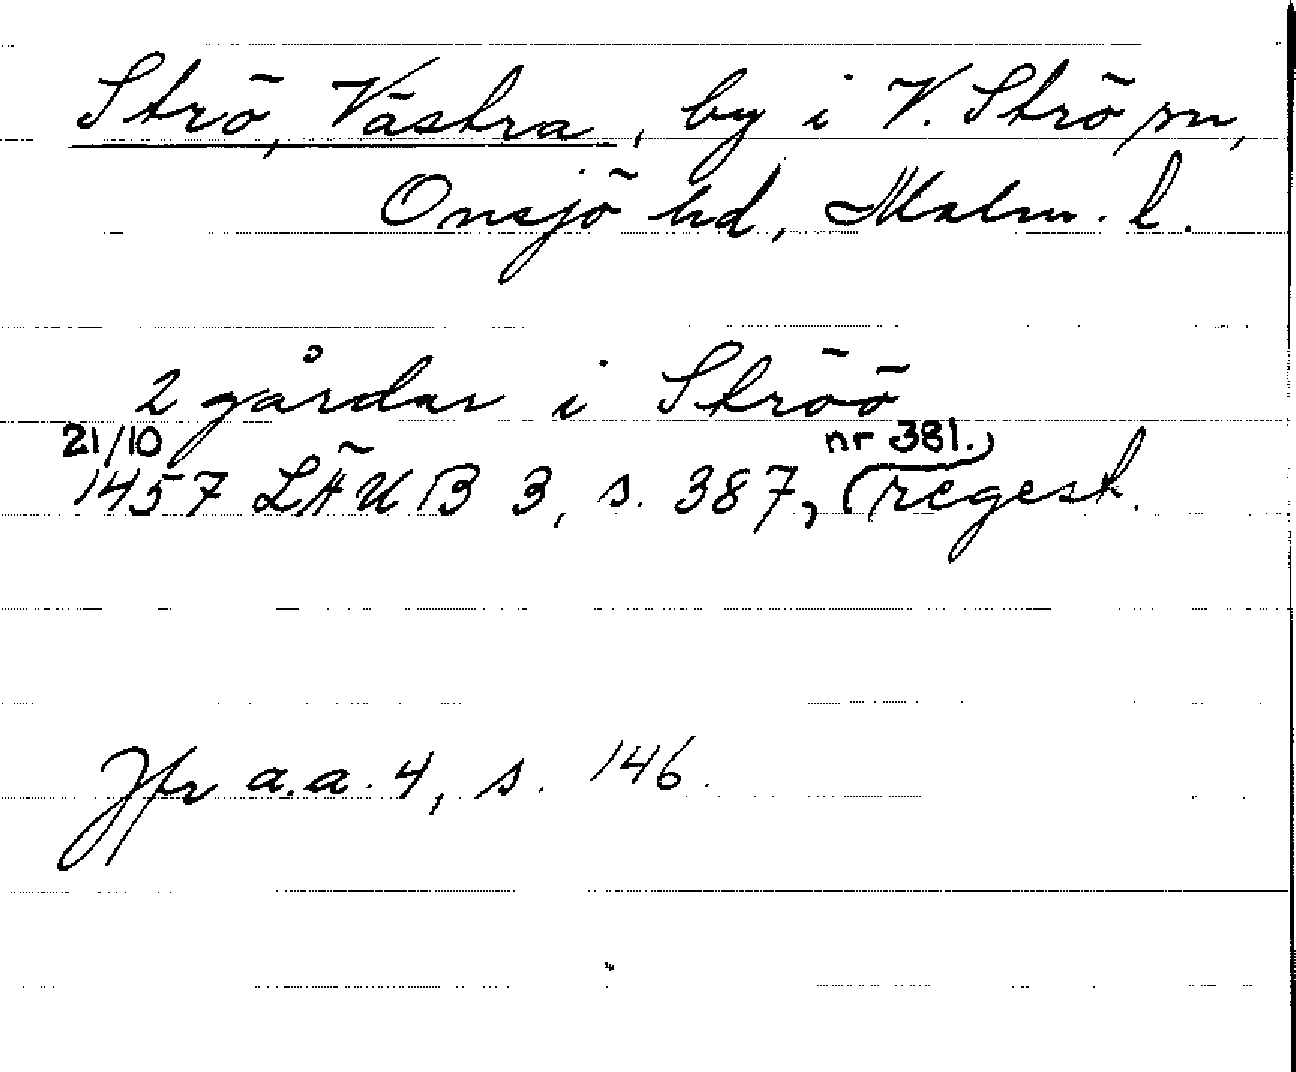 Strö, Västra, by i V. Strö sn,
Onsjö hd, Malm. l.
2 gårdar i Ströö
21/10 nr 381.
1457 LÄUB 3, s. 387, (regest.
Jfr a.a. 4, s. 146.